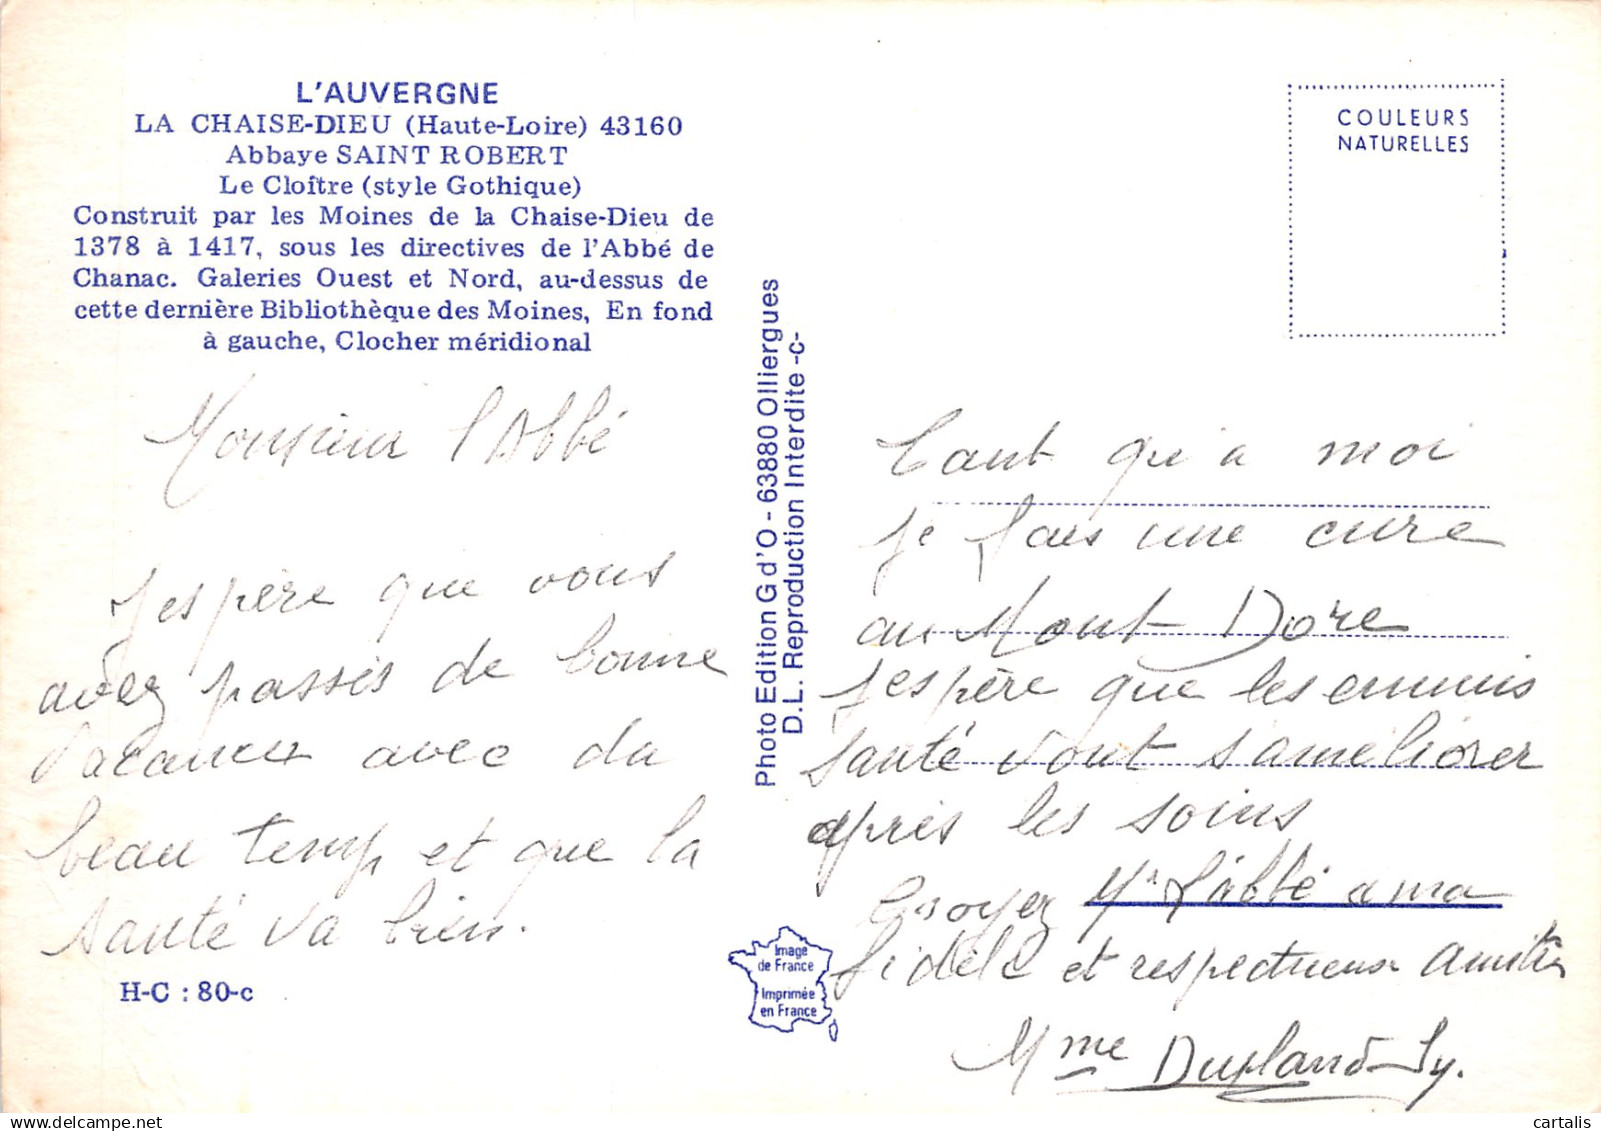 L'AUVERGNE
LA CHAISE-DIEU (Haute-Loire) 43160
Abbaye SAINT ROBERT
Le Cloître (style Gothique)
Construit par les Moines de la Chaise-Dieu de
1378 à 1417, sous les directives de l'Abbé de
Chanac. Galeries Ouest et Nord, au-dessus de
cette dernière Bibliothèque des Moines, En fond
à gauche, Clocher méridional
Monsieur l'Abbé
J'espère que vous
avez passés de bonne
Vacances avec du
beau temp et que la
santé va bien.
H-C : 80-c
Photo Edition G d'O - 63880 Olliergues
D.L. Reproduction Interdite -c-
Image
de France
Imprimée
en France
COULEURS
NATURELLES
Tant qu'a moi
je fais une cure
au Mont Dore
J'espère que les ennuis
santé vont s'améliorer
après les soins
Croyez Mr l'abbé a ma
fidèle et respectueux amitié
Mme
cartalis on Delcampe.net